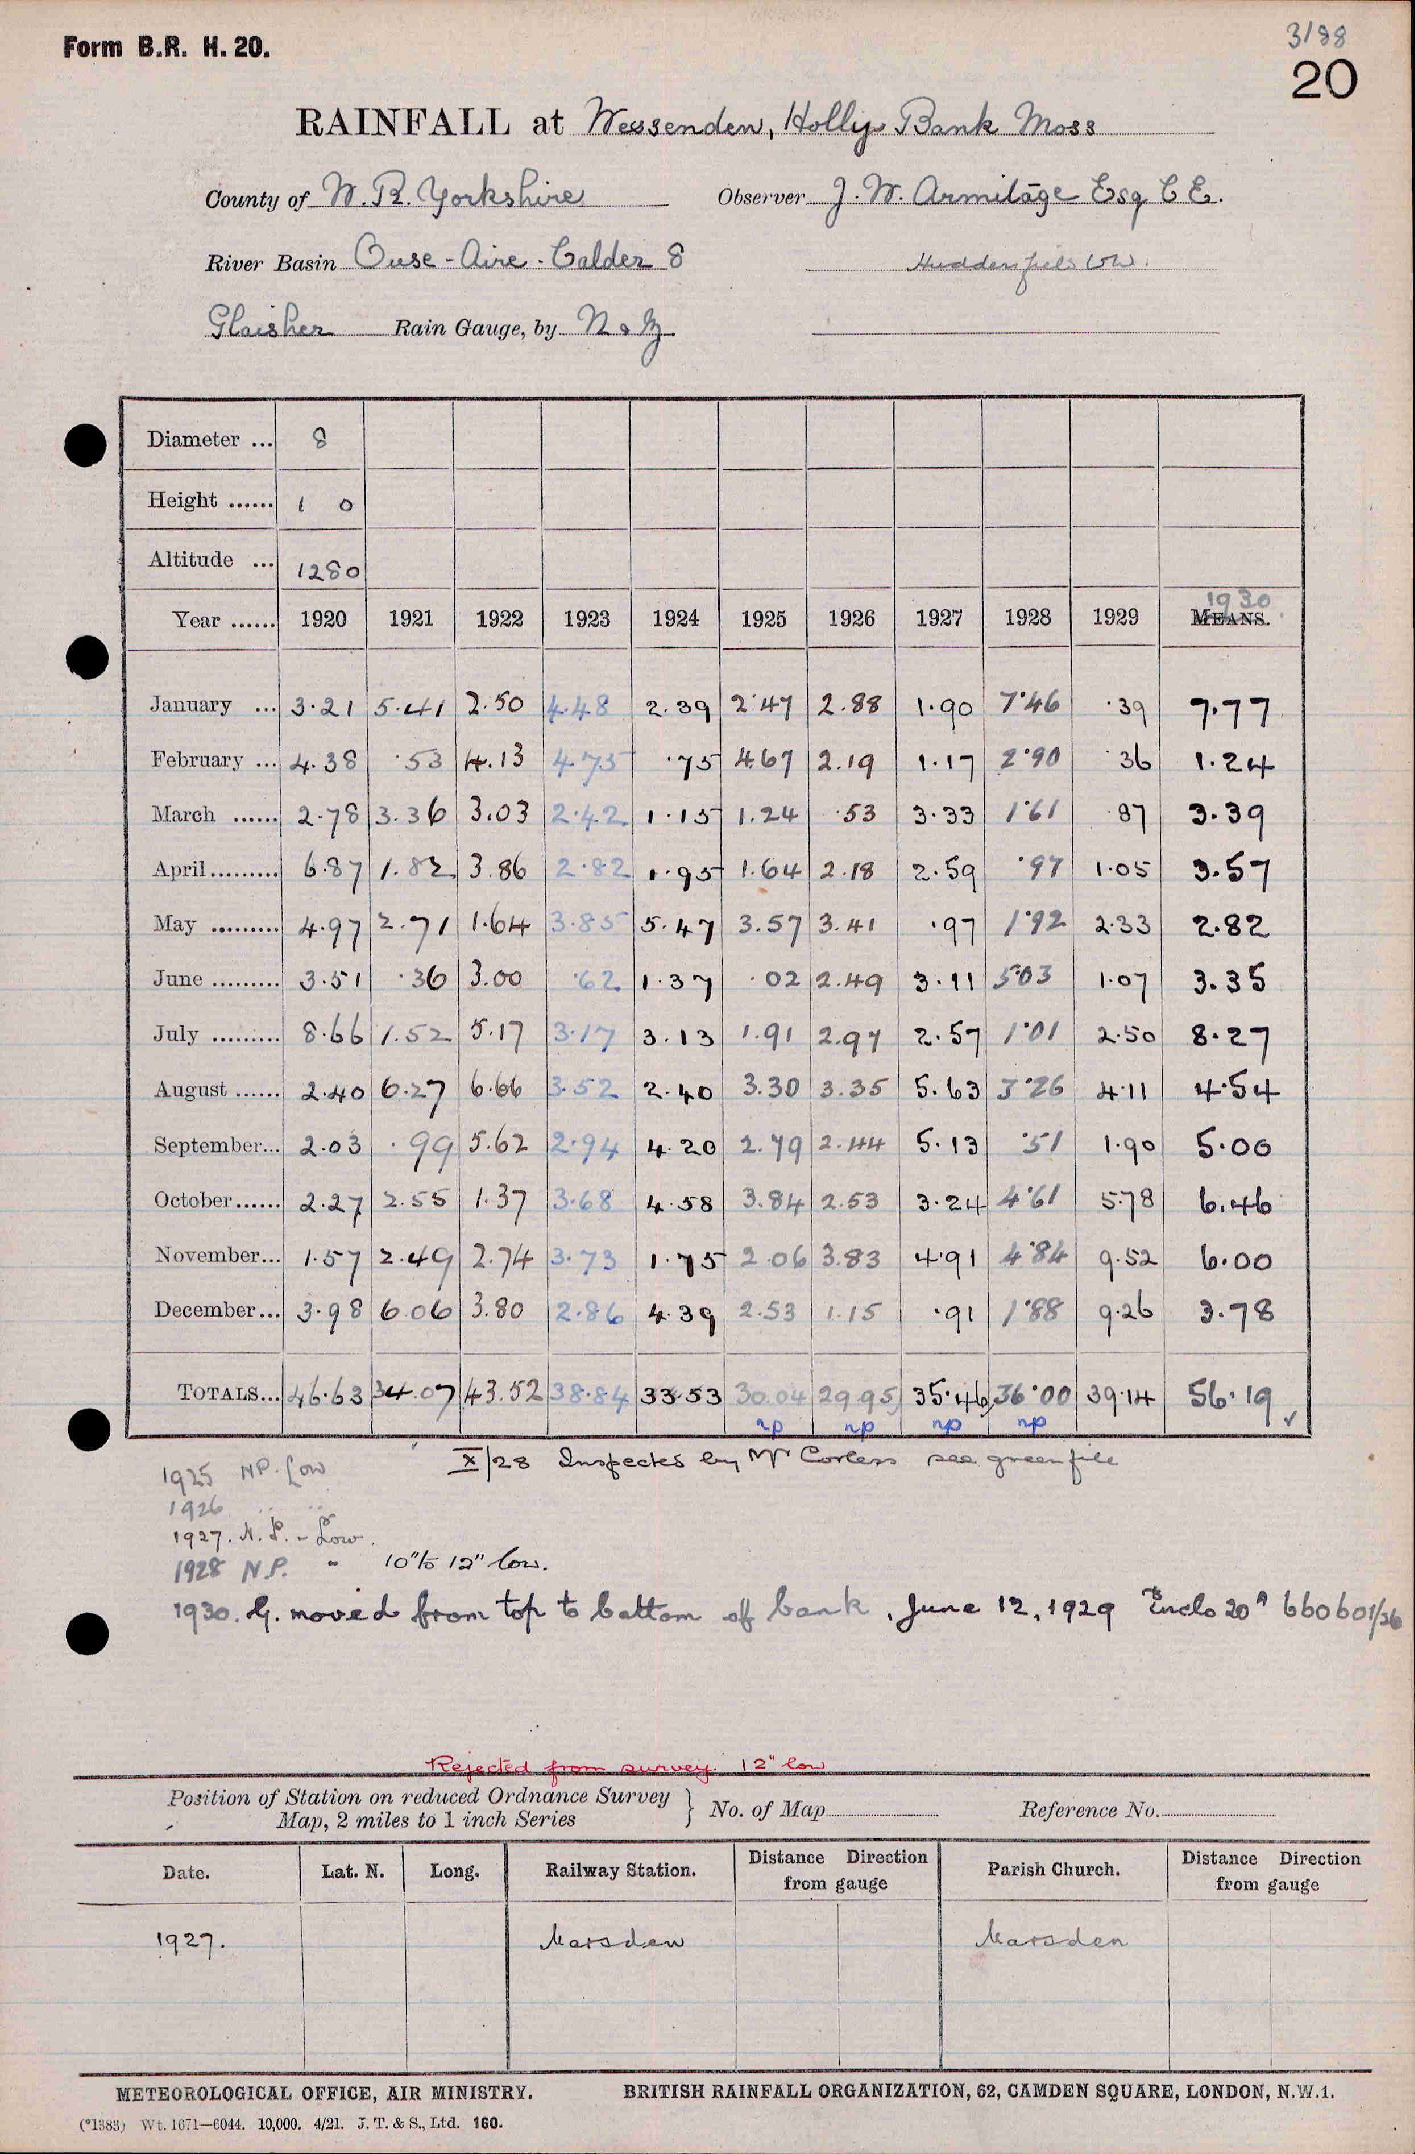 3/88
Form B.R. H. 20.
20
RAINFALL at Wessenden, Holly Bank Moss
County of W. R. Yorkshire Observer J. W. Armitage Esq C E.
River Basin Ouse - Aire - Calder 8 Huddersfield WW.
Glaisher Rain Gauge, by N & Z
Diameter ... 8
Height ...... 1 0
Altitude ... 1280
1930
Year ...... 1920 1921 1922 1923 1924 1925 1926 1927 1928 1929 MEANS.
January ... 3.21 5.41 2.50 4.48 2.39 2.47 2.88 1.90 7.46 .39 7.77
February ... 4.38 .53 4.13 4.75 .75 4.67 2.19 1.17 2.90 .36 1.24
March ...... 2.78 3.36 3.03 2.42 1.15 1.24 .53 3.33 1.61 .87 3.39
April......... 6.87 1.82 3.86 2.82 1.95 1.64 2.18 2.59 .97 1.05 3.57
May ......... 4.97 2.71 1.64 3.85 5.47 3.57 3.41 .97 1.92 2.33 2.82
June ......... 3.51 .36 3.00 .62 1.37 .02 2.49 3.11 5.03 1.07 3.35
July ......... 8.66 1.52 5.17 3.17 3.13 1.91 2.97 2.57 1.01 2.50 8.27
August ...... 2.40 6.27 6.66 3.52 2.40 3.30 3.35 5.63 3.26 4.11 4.54
September... 2.03 .99 5.62 2.94 4.20 2.79 2.44 5.13 .51 1.90 5.00
October...... 2.27 2.55 1.37 3.68 4.58 3.84 2.53 3.24 4.61 5.78 6.46
November... 1.57 2.49 2.74 3.73 1.75 2.06 3.83 4.91 4.84 9.52 6.00
December... 3.98 6.06 3.80 2.86 4.39 2.53 1.15 .91 1.88 9.26 3.78
TOTALS... 46.63 34.07 43.52 38.84 33.53 30.04 29.95 35.46 36.00 39.14 56.19 ✓
np np np np
X/28 Inspected by Mr Corless see green file
1925 N.P. Low
1926 " "
1927. N. P. - Low.
1928 N.P. " 10" to 12" low.
1930. G. moved from top to bottom of bank, June 12, 1929 Enclo 20A 660601/36
Rejected from survey. 12" low
Position of Station on reduced Ordnance Survey
Map, 2 miles to 1 inch Series } No. of Map Reference No.
Date. Lat. N. Long. Railway Station. Distance Direction from gauge Parish Church. Distance Direction from gauge
1927. Marsden Marsden
METEOROLOGICAL OFFICE, AIR MINISTRY. BRITISH RAINFALL ORGANIZATION, 62, CAMDEN SQUARE, LONDON, N.W.1.
(*1383) Wt. 1671—6044. 10,000. 4/21. J. T. & S., Ltd. 160.